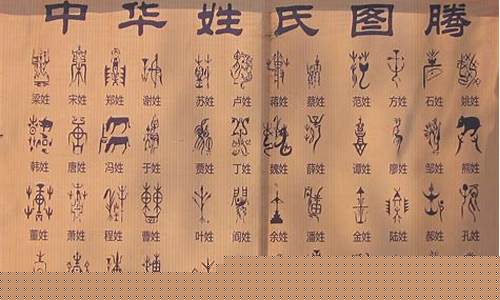 中华姓氏图腾
梁姓 宋姓 郑姓 谢姓 苏姓 卢姓 蒋姓 蔡姓 范姓 方姓 石姓 姚姓
韩姓 唐姓 冯姓 于姓 贾姓 丁姓 魏姓 薛姓 谭姓 廖姓 邹姓 熊姓
董姓 萧姓 程姓 曹姓 叶姓 阎姓 余姓 潘姓 金姓 陆姓 郝姓 孔姓